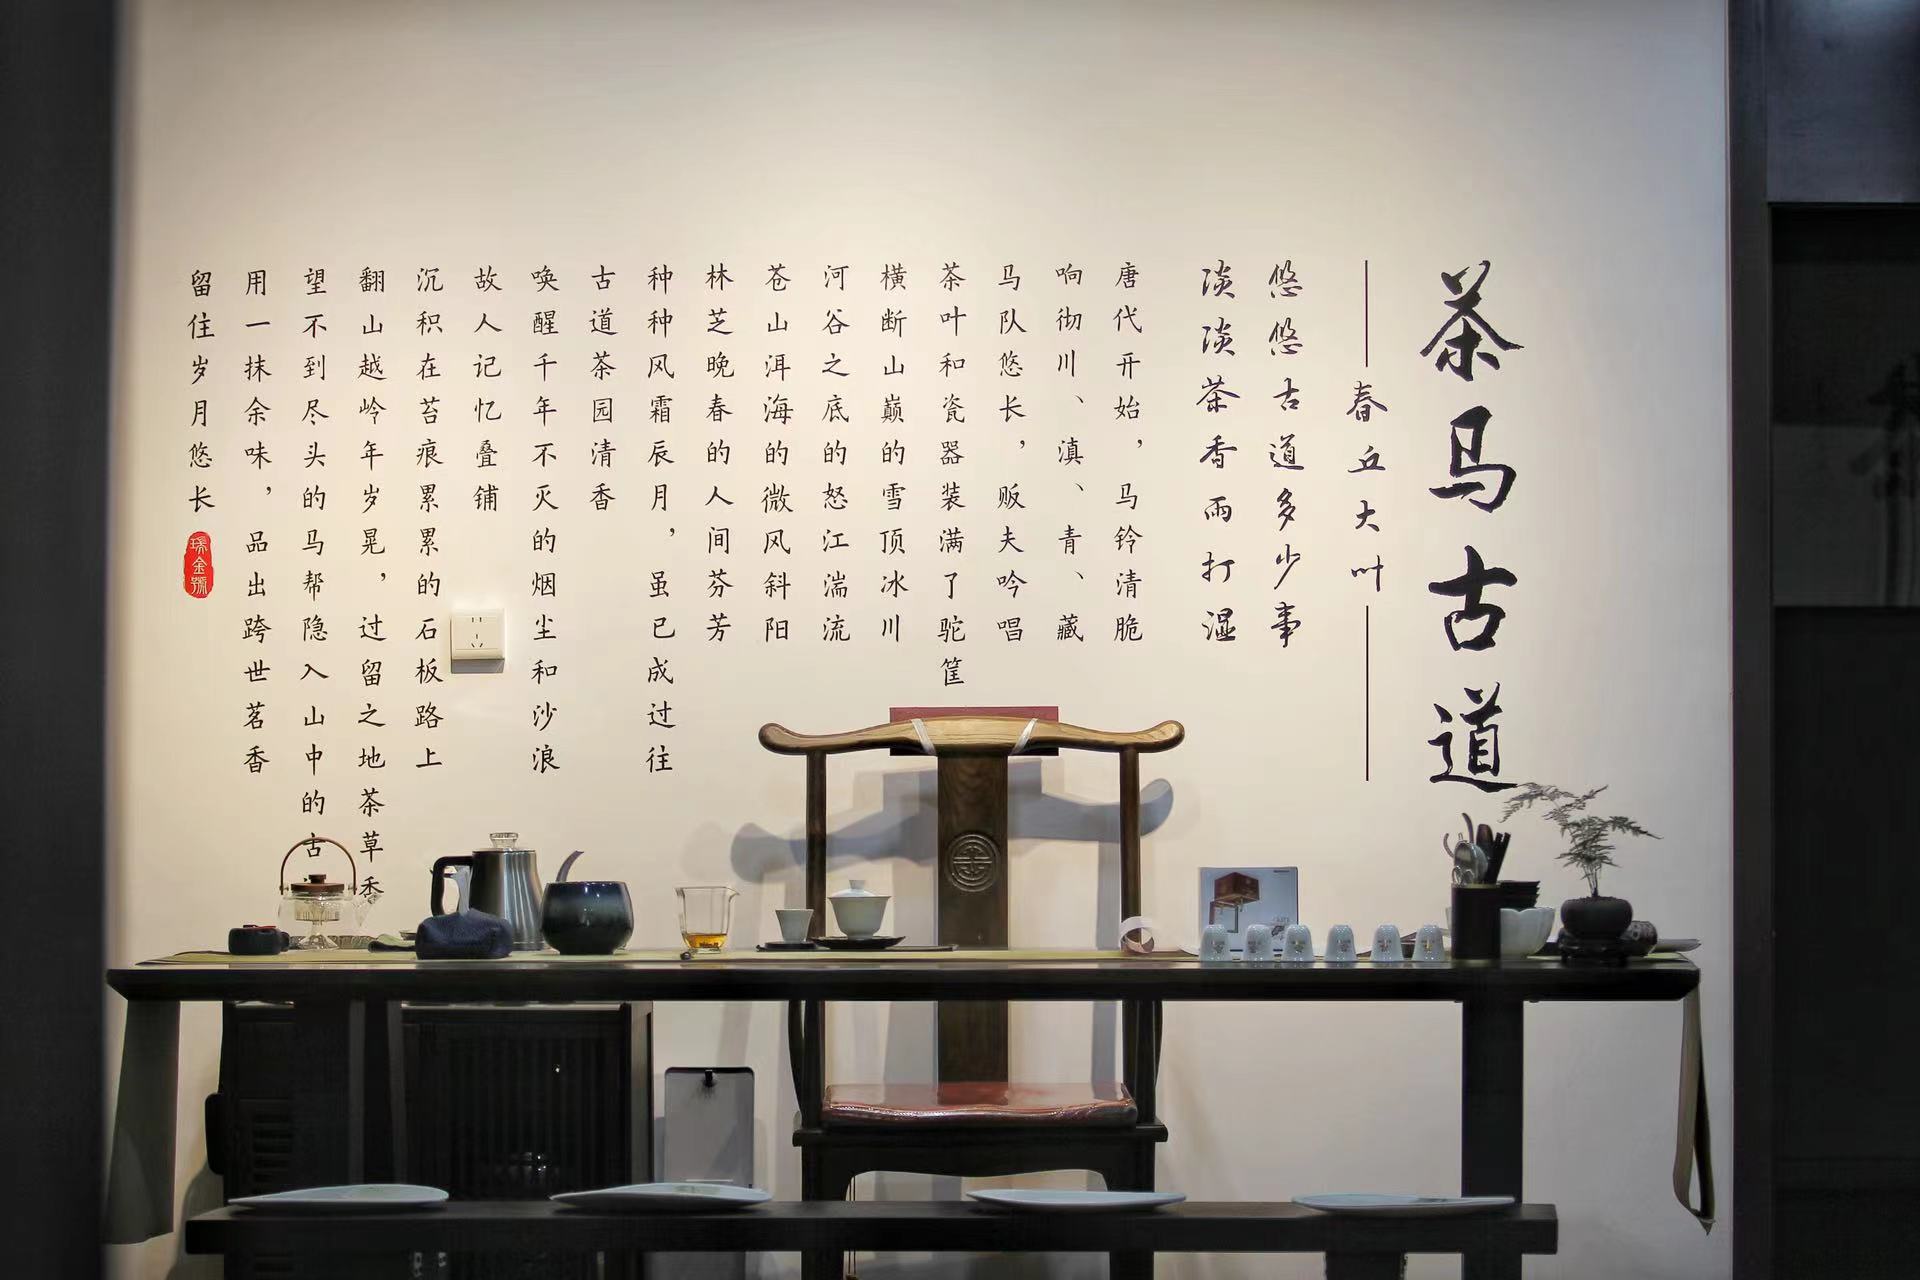 茶马古道
春丘大叶
悠悠古道多少事
淡淡茶香雨打湿
唐代开始，马铃清脆
响彻川、滇、青、藏
马队悠长，贩夫吟唱
茶叶和瓷器装满了驼筐
横断山巅的雪顶冰川
河谷之底的怒江湍流
苍山洱海的微风斜阳
林芝晚春的人间芬芳
种种风霜辰月，虽已成过往
古道茶园清香
唤醒千年不灭的烟尘和沙浪
故人记忆叠铺
沉积在苔痕累累的石板路上
翻山越岭年岁晃，过留之地茶草香
望不到尽头的马帮隐入山中的古
用一抹余味，品出跨世茗香
留住岁月悠长
瑞金號